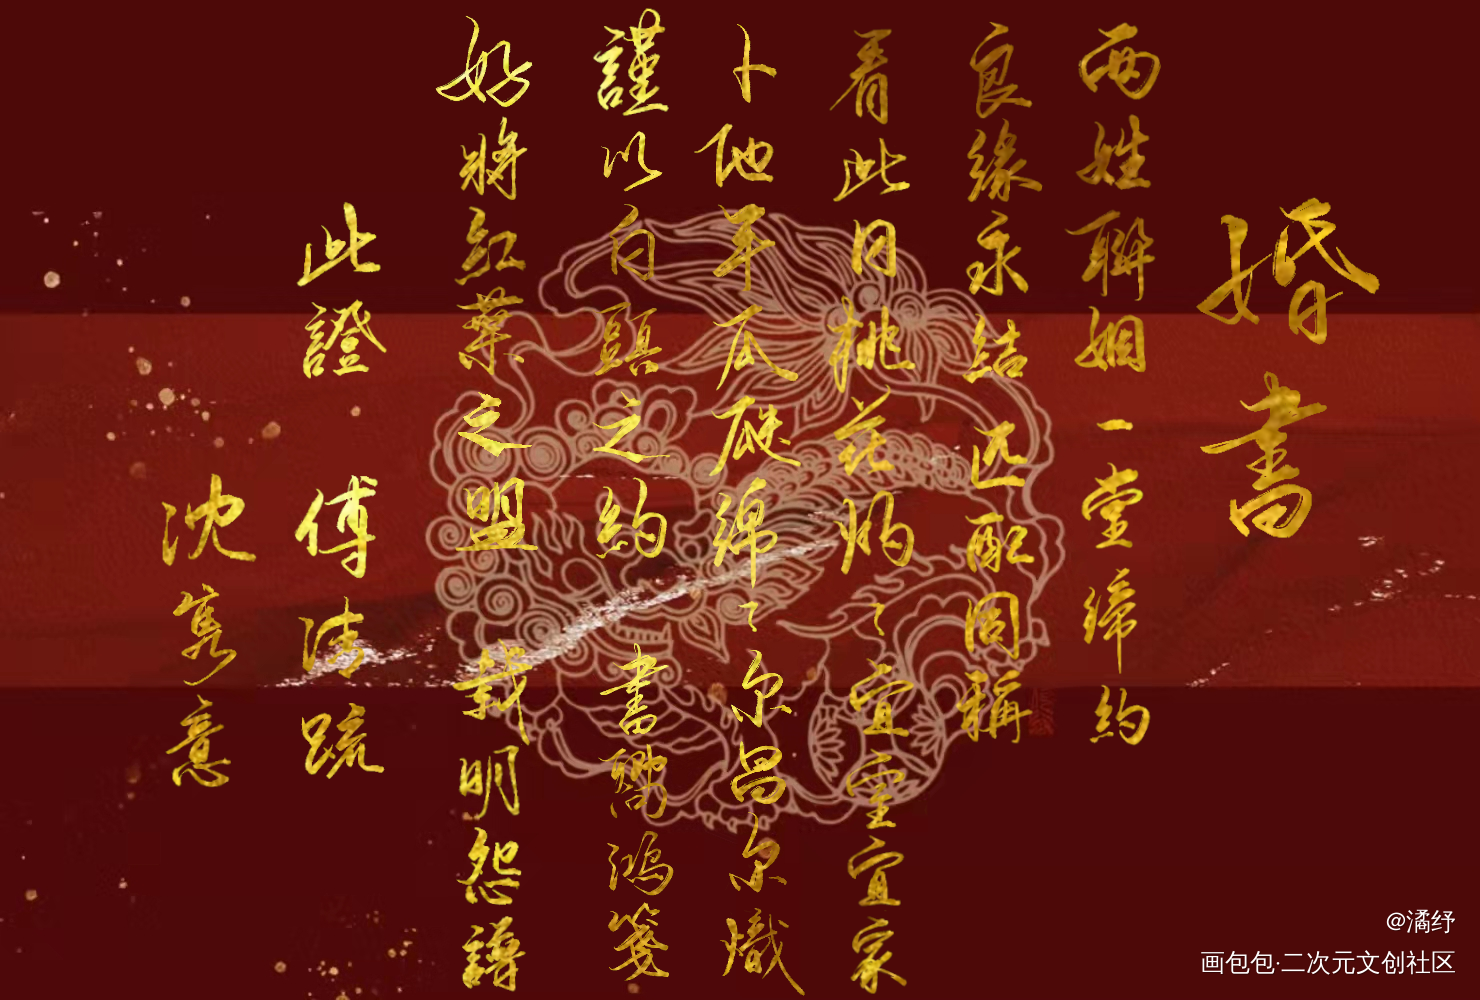 婚書
兩姓聯姻一堂締約
良緣永結 匹配同稱
看此日桃花灼ミ宜室宜家
卜他年瓜瓞綿ミ尔昌尔熾
謹以白頭之約 書向鴻箋
好將紅葉之盟 載明鴛譜
此證 傅清疏
沈意
@潏纾
画包包·二次元文创社区